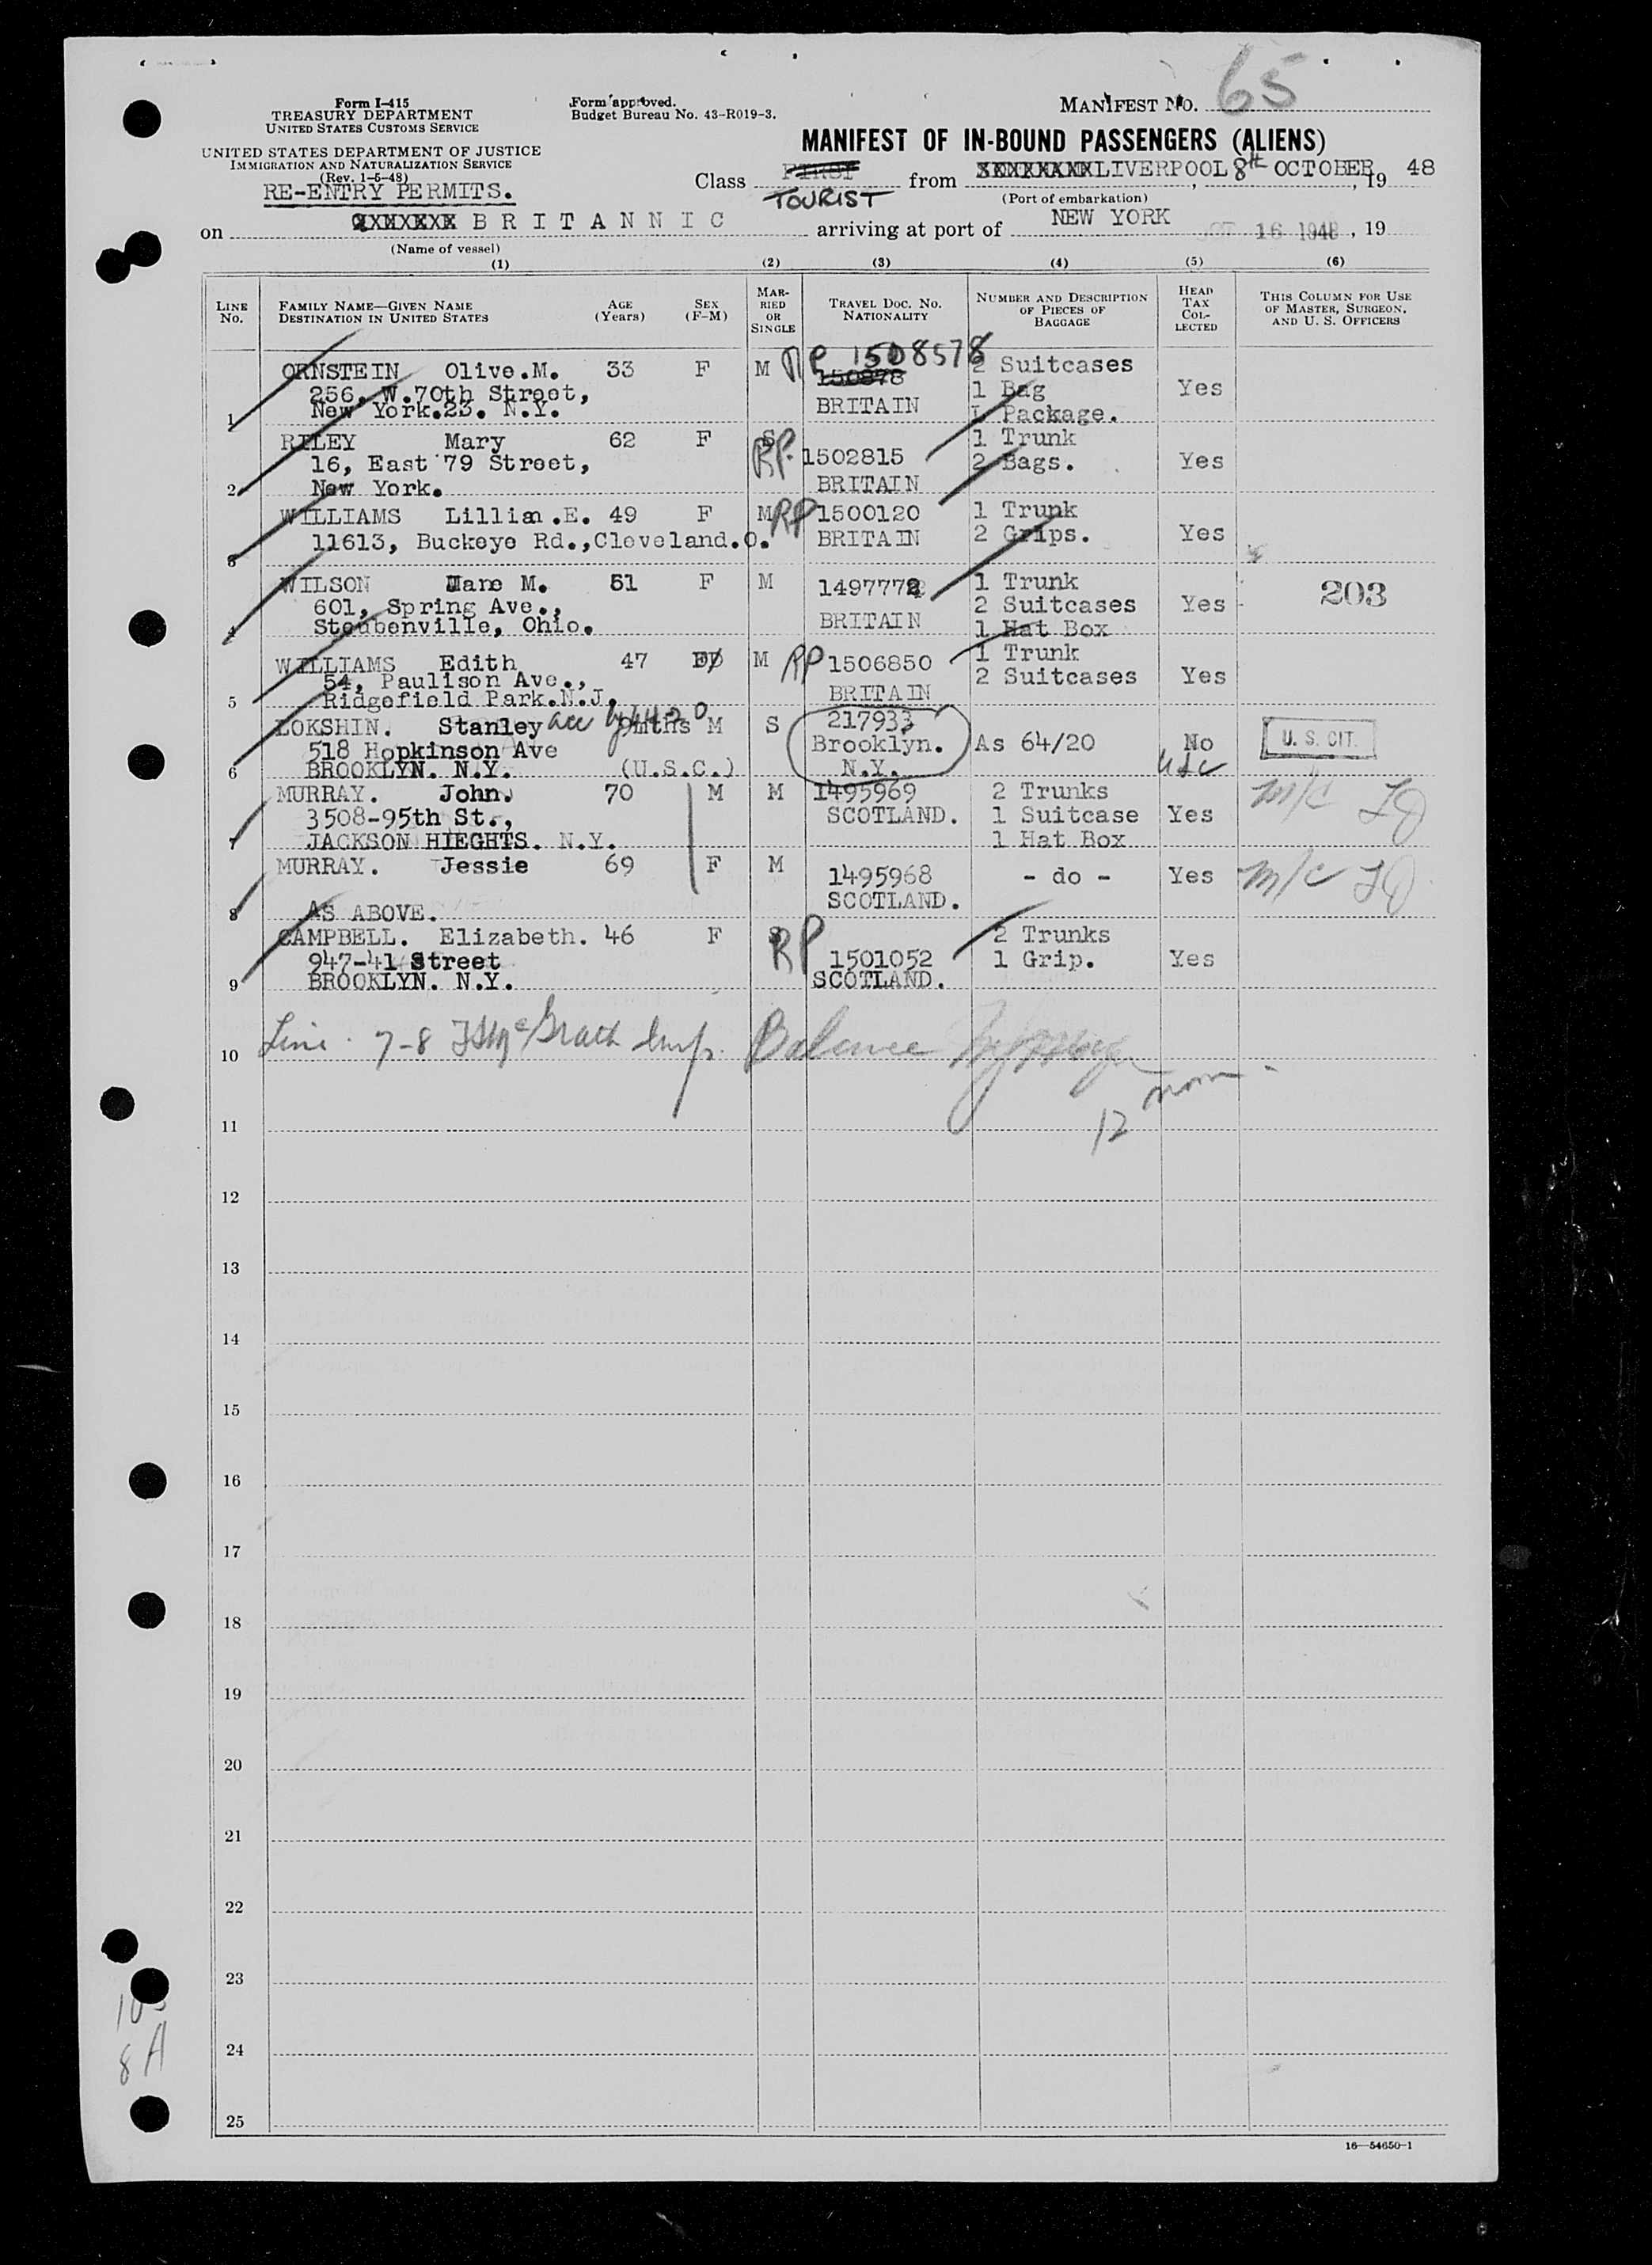 65
Form I-415
TREASURY DEPARTMENT
UNITED STATES CUSTOMS SERVICE
Form approved.
Budget Bureau No. 43-R019-3.
MANIFEST No.
UNITED STATES DEPARTMENT OF JUSTICE
IMMIGRATION AND NATURALIZATION SERVICE
(Rev. 1-5-48)
MANIFEST OF IN-BOUND PASSENGERS (ALIENS)
RE-ENTRY PERMITS.
Class FIRST TOURIST from LIVERPOOL 8th OCTOBER, 19 48
(Port of embarkation)
on BRITANNIC arriving at port of NEW YORK OCT 16 1948, 19
(Name of vessel)
(1) (2) (3) (4) (5) (6)
LINE No.
FAMILY NAME—GIVEN NAME
DESTINATION IN UNITED STATES
AGE (Years)
SEX (F-M)
MARRIED OR SINGLE
TRAVEL DOC. NO. NATIONALITY
NUMBER AND DESCRIPTION OF PIECES OF BAGGAGE
HEAD TAX COLLECTED
THIS COLUMN FOR USE OF MASTER, SURGEON, AND U. S. OFFICERS
ORNSTEIN Olive.M. 33 F M RP 1508578 2 Suitcases
256, W.70th Street, 150878 1 Bag Yes
1 New York.23. N.Y. BRITAIN 1 Package.
RILEY Mary 62 F S 1 Trunk
16, East 79 Street, RP. 1502815 2 Bags. Yes
2 New York. BRITAIN
WILLIAMS Lillian.E. 49 F M RP 1500120 1 Trunk
11613, Buckeye Rd.,Cleveland.O. BRITAIN 2 Grips. Yes
3
WILSON Jane M. 51 F M 1497772 1 Trunk
601, Spring Ave., 2 Suitcases Yes 203
4 Steubenville, Ohio. BRITAIN 1 Hat Box
WILLIAMS Edith 47 F M RP 1506850 1 Trunk
54, Paulison Ave., 2 Suitcases Yes
5 Ridgefield Park.N.J. BRITAIN
LOKSHIN. Stanley acc by 64-20 9mths M S 217933
518 Hopkinson Ave Brooklyn. As 64/20 No U. S. CIT.
6 BROOKLYN. N.Y. (U.S.C.) N.Y. USC
MURRAY. John. 70 M M 1495969 2 Trunks
3508-95th St., SCOTLAND. 1 Suitcase Yes M/C
7 JACKSON HIEGHTS. N.Y. 1 Hat Box
MURRAY. Jessie 69 F M 1495968 - do - Yes M/C
8 AS ABOVE. SCOTLAND.
CAMPBELL. Elizabeth. 46 F S RP 2 Trunks
947-41 Street 1501052 1 Grip. Yes
9 BROOKLYN. N.Y. SCOTLAND.
10 Line 7-8 McGrath Insp. Balance
12 noon
11
12
13
14
15
16
17
18
19
20
21
22
23
24
8A
25
16—54650-1